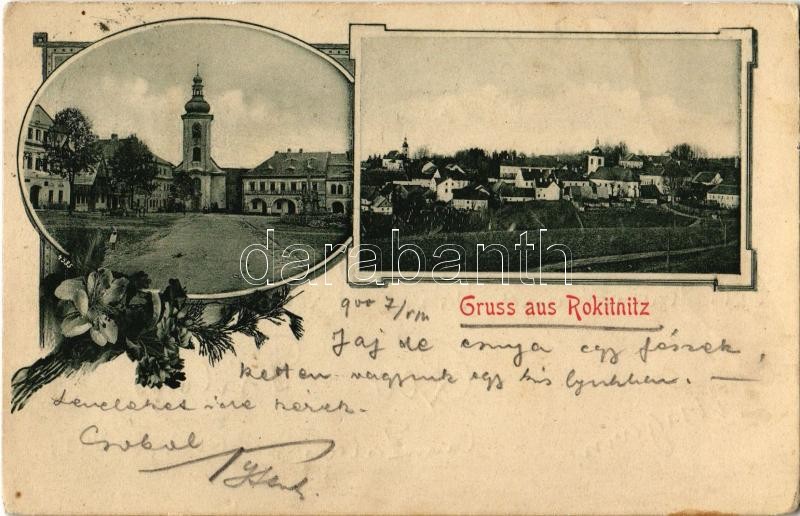 4335
darabanth
Gruss aus Rokitnitz
900 7/VIII
Jaj de csunya egy fészek,
ketten vagyunk egy kis lyukban. —
Leveleket ide kérek.
Csókol